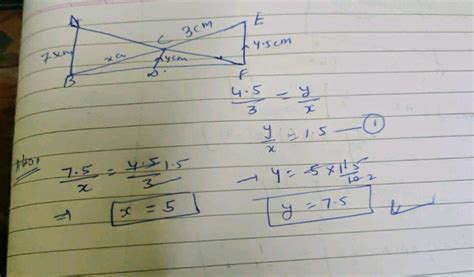 A
E
3cm
C
7.5cm
4.5cm
x cm
B
D
y cm
F
4.5/3 = y/x
y/x = 1.5 — ①
7.5/x = 4.5/3 1.5
⇒ x = 5
→ y = 5 × 15/10 2
y = 7.5